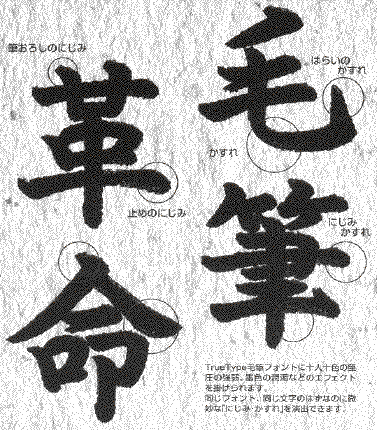 毛筆
革命
筆おろしのにじみ
はらいの
かすれ
かすれ
止めのにじみ
にじみ
かすれ
TrueType毛筆フォントに十人十色の筆
圧の強弱、墨色の潤渇などのエフェクト
を掛けられます。
同じフォント、同じ文字のはずなのに微
妙な「にじみ・かすれ」を演出できます。